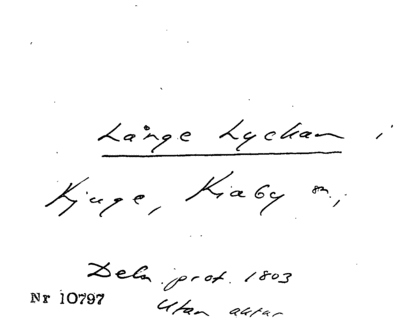 Långe Lyckan i
Kjuge, Kiaby sn.;
Deln. prot. 1803
Nr 10797
Utan aktnr